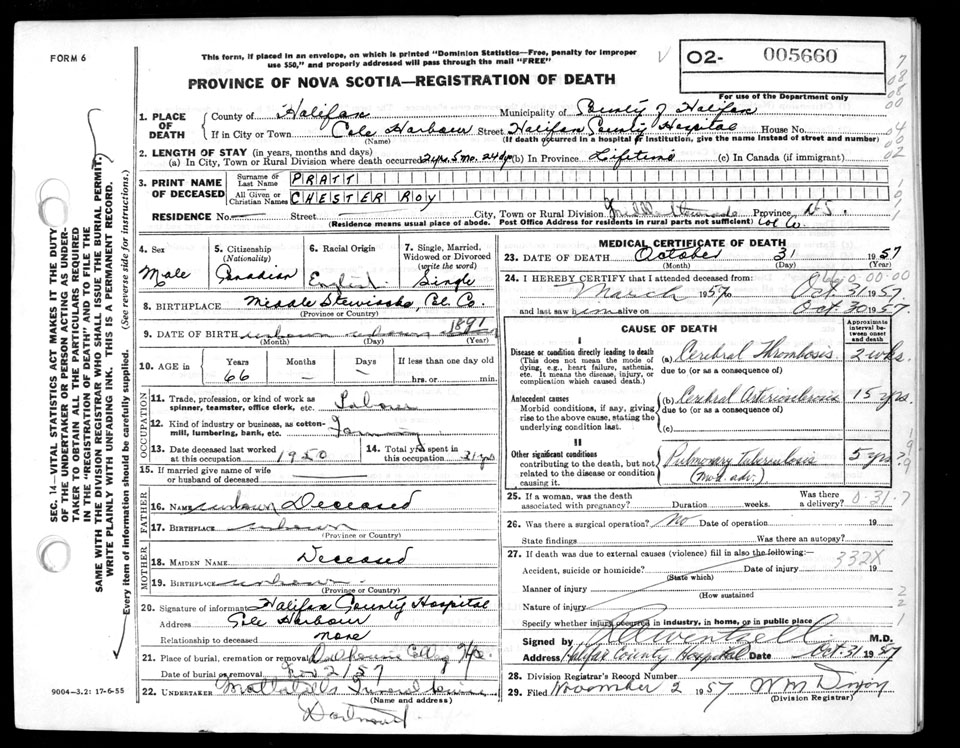 FORM 6
This form, if placed in an envelope, on which is printed "Dominion Statistics—Free, penalty for improper
use $50," and properly addressed will pass through the mail "FREE"
O2- 005660
For use of the Department only
PROVINCE OF NOVA SCOTIA—REGISTRATION OF DEATH
1. PLACE OF DEATH
County of Halifax Municipality of County of Halifax
If in City or Town Cole Harbour Street Halifax County Hospital House No.
(Name) (If death occurred in a hospital or institution, give the name instead of street and number)
2. LENGTH OF STAY (in years, months and days)
(a) In City, Town or Rural Division where death occurred 2 yrs. 5 mo. 24 dys (b) In Province Lifetime (c) In Canada (if immigrant)
3. PRINT NAME OF DECEASED
Surname or Last Name PRATT
All Given or Christian Names CHESTER ROY
RESIDENCE No. — Street City, Town or Rural Division Middle Stewiacke Province N.S.
(Residence means usual place of abode. Post Office Address for residents in rural parts not sufficient) Col. Co.
4. Sex
Male
5. Citizenship
(Nationality)
Canadian
6. Racial Origin
English
7. Single, Married,
Widowed or Divorced
(write the word)
Single
8. BIRTHPLACE Middle Stewiacke, Col. Co.
(Province or Country)
9. DATE OF BIRTH unknown unknown 1891
(Month) (Day) (Year)
10. AGE in
Years 66
Months —
Days —
If less than one day old
hrs. or min.
OCCUPATION
11. Trade, profession, or kind of work as
spinner, teamster, office clerk, etc. Labour
12. Kind of industry or business, as cotton-
mill, lumbering, bank, etc. Farming
13. Date deceased last worked
at this occupation 1950
14. Total yrs. spent in
this occupation 31 yrs
15. If married give name of wife
or husband of deceased
FATHER
16. NAME unknown Deceased
17. BIRTHPLACE unknown
(Province or Country)
MOTHER
18. MAIDEN NAME Deceased
19. BIRTHPLACE unknown
(Province or Country)
20. Signature of informant Halifax County Hospital
Address Cole Harbour
Relationship to deceased none
21. Place of burial, cremation or removal Dalhousie
Date of burial or removal Nov 2/57
22. UNDERTAKER Funeral
(Name and address)
Dartmouth
9004-3.2: 17-6-55
MEDICAL CERTIFICATE OF DEATH
23. DATE OF DEATH October 31 1957
(Month) (Day) (Year)
24. I HEREBY CERTIFY that I attended deceased from
March 1957 to Oct. 31 1957
and last saw him alive on Oct. 30 1957
CAUSE OF DEATH
Approximate
interval be-
tween onset
and death
I
Disease or condition directly leading to death
(This does not mean the mode of
dying, e.g., heart failure, asthenia,
etc. It means the disease, injury, or
complication which caused death.)
(a) Cerebral Thrombosis 2 wks.
due to (or as a consequence of)
Antecedent causes
Morbid conditions, if any, giving
rise to the above cause, stating the
underlying condition last.
(b) Cerebral Arteriosclerosis 15 yrs.
due to (or as a consequence of)
(c)
II
Other significant conditions
contributing to the death, but not
related to the disease or condition
causing it.
Pulmonary Tuberculosis 5 yrs
(Mod. adv.)
25. If a woman, was the death
associated with pregnancy? Duration weeks. Was there
a delivery?
26. Was there a surgical operation? No Date of operation 19
State findings Was there an autopsy?
27. If death was due to external causes (violence) fill in also the following:
332X
Accident, suicide or homicide? Date of injury 19
(State which)
Manner of injury
(How sustained
Nature of injury
Specify whether injury occurred in industry, in home, or in public place
Signed by M.D.
Address Halifax County Hospital Date Oct. 31 1957
28. Division Registrar's Record Number
29. Filed November 2 1957 Wm Dixon
(Division Registrar)
SEC. 14—VITAL STATISTICS ACT MAKES IT THE DUTY
OF THE UNDERTAKER OR PERSON ACTING AS UNDER-
TAKER TO OBTAIN ALL THE PARTICULARS REQUIRED
IN THE "REGISTRATION OF DEATH" AND TO FILE THE
SAME WITH THE DIVISION REGISTRAR WHO SHALL ISSUE THE BURIAL PERMIT.
WRITE PLAINLY WITH UNFADING INK. THIS IS A PERMANENT RECORD.
Every item of information should be carefully supplied. (See reverse side for instructions.)